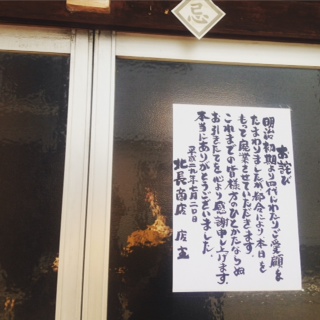 忌
お詫び
明治初期より四代にわたりご愛顧を
たまわりましたが都合により本日を
もって廃業させていただきます。
これまでの皆様方のひとかたならぬ
お引きたてを心より感謝申し上げます。
本当にありがとうございました。
平成二九年七月二〇日
北長商店 店主